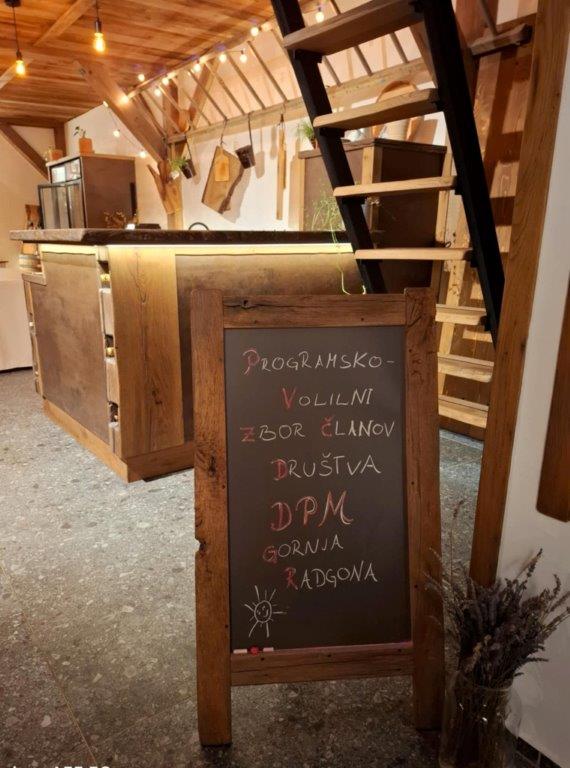 PROGRAMSKO-
VOLILNI
ZBOR ČLANOV
DRUŠTVA
DPM
GORNJA
RADGONA